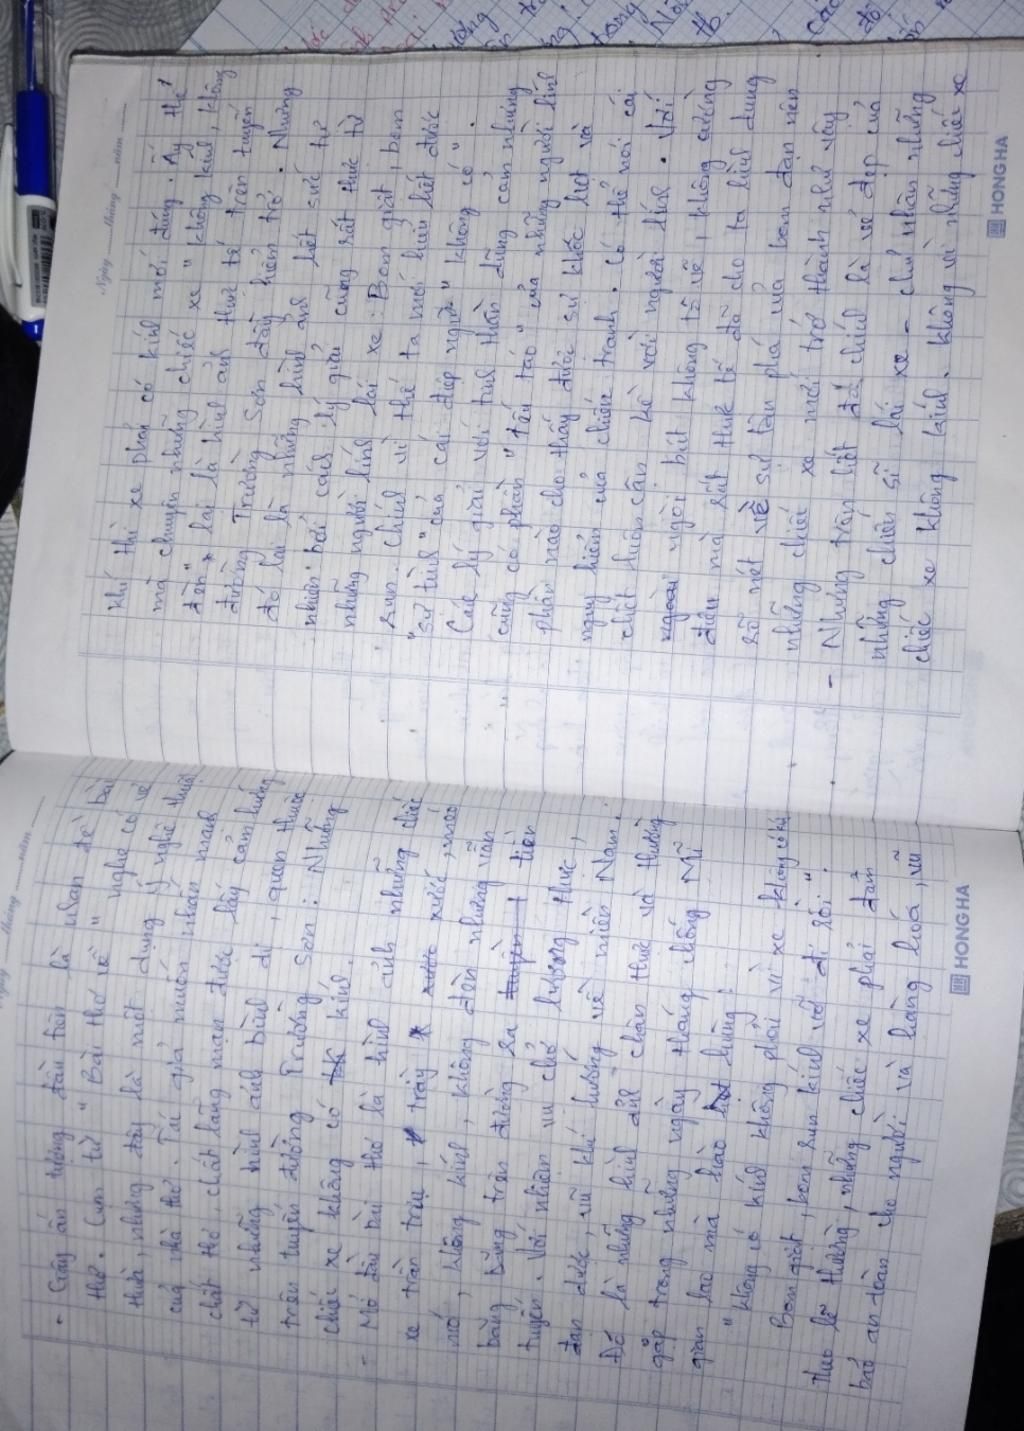 Ngày ___ tháng ___ năm ___
- Gây ấn tượng đầu tiên là nhan đề bài
thơ. Cụm từ "Bài thơ về" nghe có vẻ
thừa, nhưng đây là một dụng ý nghệ thuật
của nhà thơ. Tác giả muốn nhấn mạnh
chất thơ, chất lãng mạn được lấy cảm hứng
từ những hình ảnh bình dị, quen thuộc
trên tuyến đường Trường Sơn: Những
chiếc xe không có kính.
- Mở đầu bài thơ là hình ảnh những chiếc
xe trần trụi, trầy xước, méo
mó, không kính, không đèn nhưng vẫn
băng băng trên đường ra tiền
tuyến. Với nhiệm vụ chở lương thực,
đạn dược, vũ khí hướng về miền Nam.
Đó là những hình ảnh chân thực và thường
gặp trong những ngày tháng chống Mĩ
gian lao mà hào hùng:
"Không có kính không phải vì xe không có kính
Bom giật, bom rung kính vỡ đi rồi"
Theo lẽ thường, những chiếc xe phải đảm
bảo an toàn cho người và hàng hóa, vũ
HONG HA
Ngày ___ tháng ___ năm ___
khí thì xe phải có kính mới đúng. Ấy thế
mà chuyện những chiếc xe "không kính, không
đèn" lại là hình ảnh thực tế trên tuyến
đường Trường Sơn đầy hiểm trở. Nhưng
đó lại là những hình ảnh hết sức tự
nhiên bởi cách lý giải cũng rất thực từ
những người lính lái xe: Bom giật, bom
rung. Chính vì thế ta mới hiểu hết được
"sự tình" của cái điệp ngữ "không có".
Cách lý giải với tinh thần dũng cảm nhưng
cũng có phần "táo" của những người lính
phần nào cho thấy được sự khốc liệt và
nguy hiểm của chiến tranh. Có thể nói cái
chết luôn cận kề với người lính. Với
ngòi bút không tô vẽ, không cường
điệu mà rất thực tế đã cho ta hình dung
rõ nét về sự tàn phá của bom đạn nên
những chiếc xe mới trở thành như vậy
- Nhưng trên hết đó chính là vẻ đẹp của
những chiến sĩ lái xe - chủ nhân những
chiếc xe không kính. Không vì những chiếc xe
HONG HA